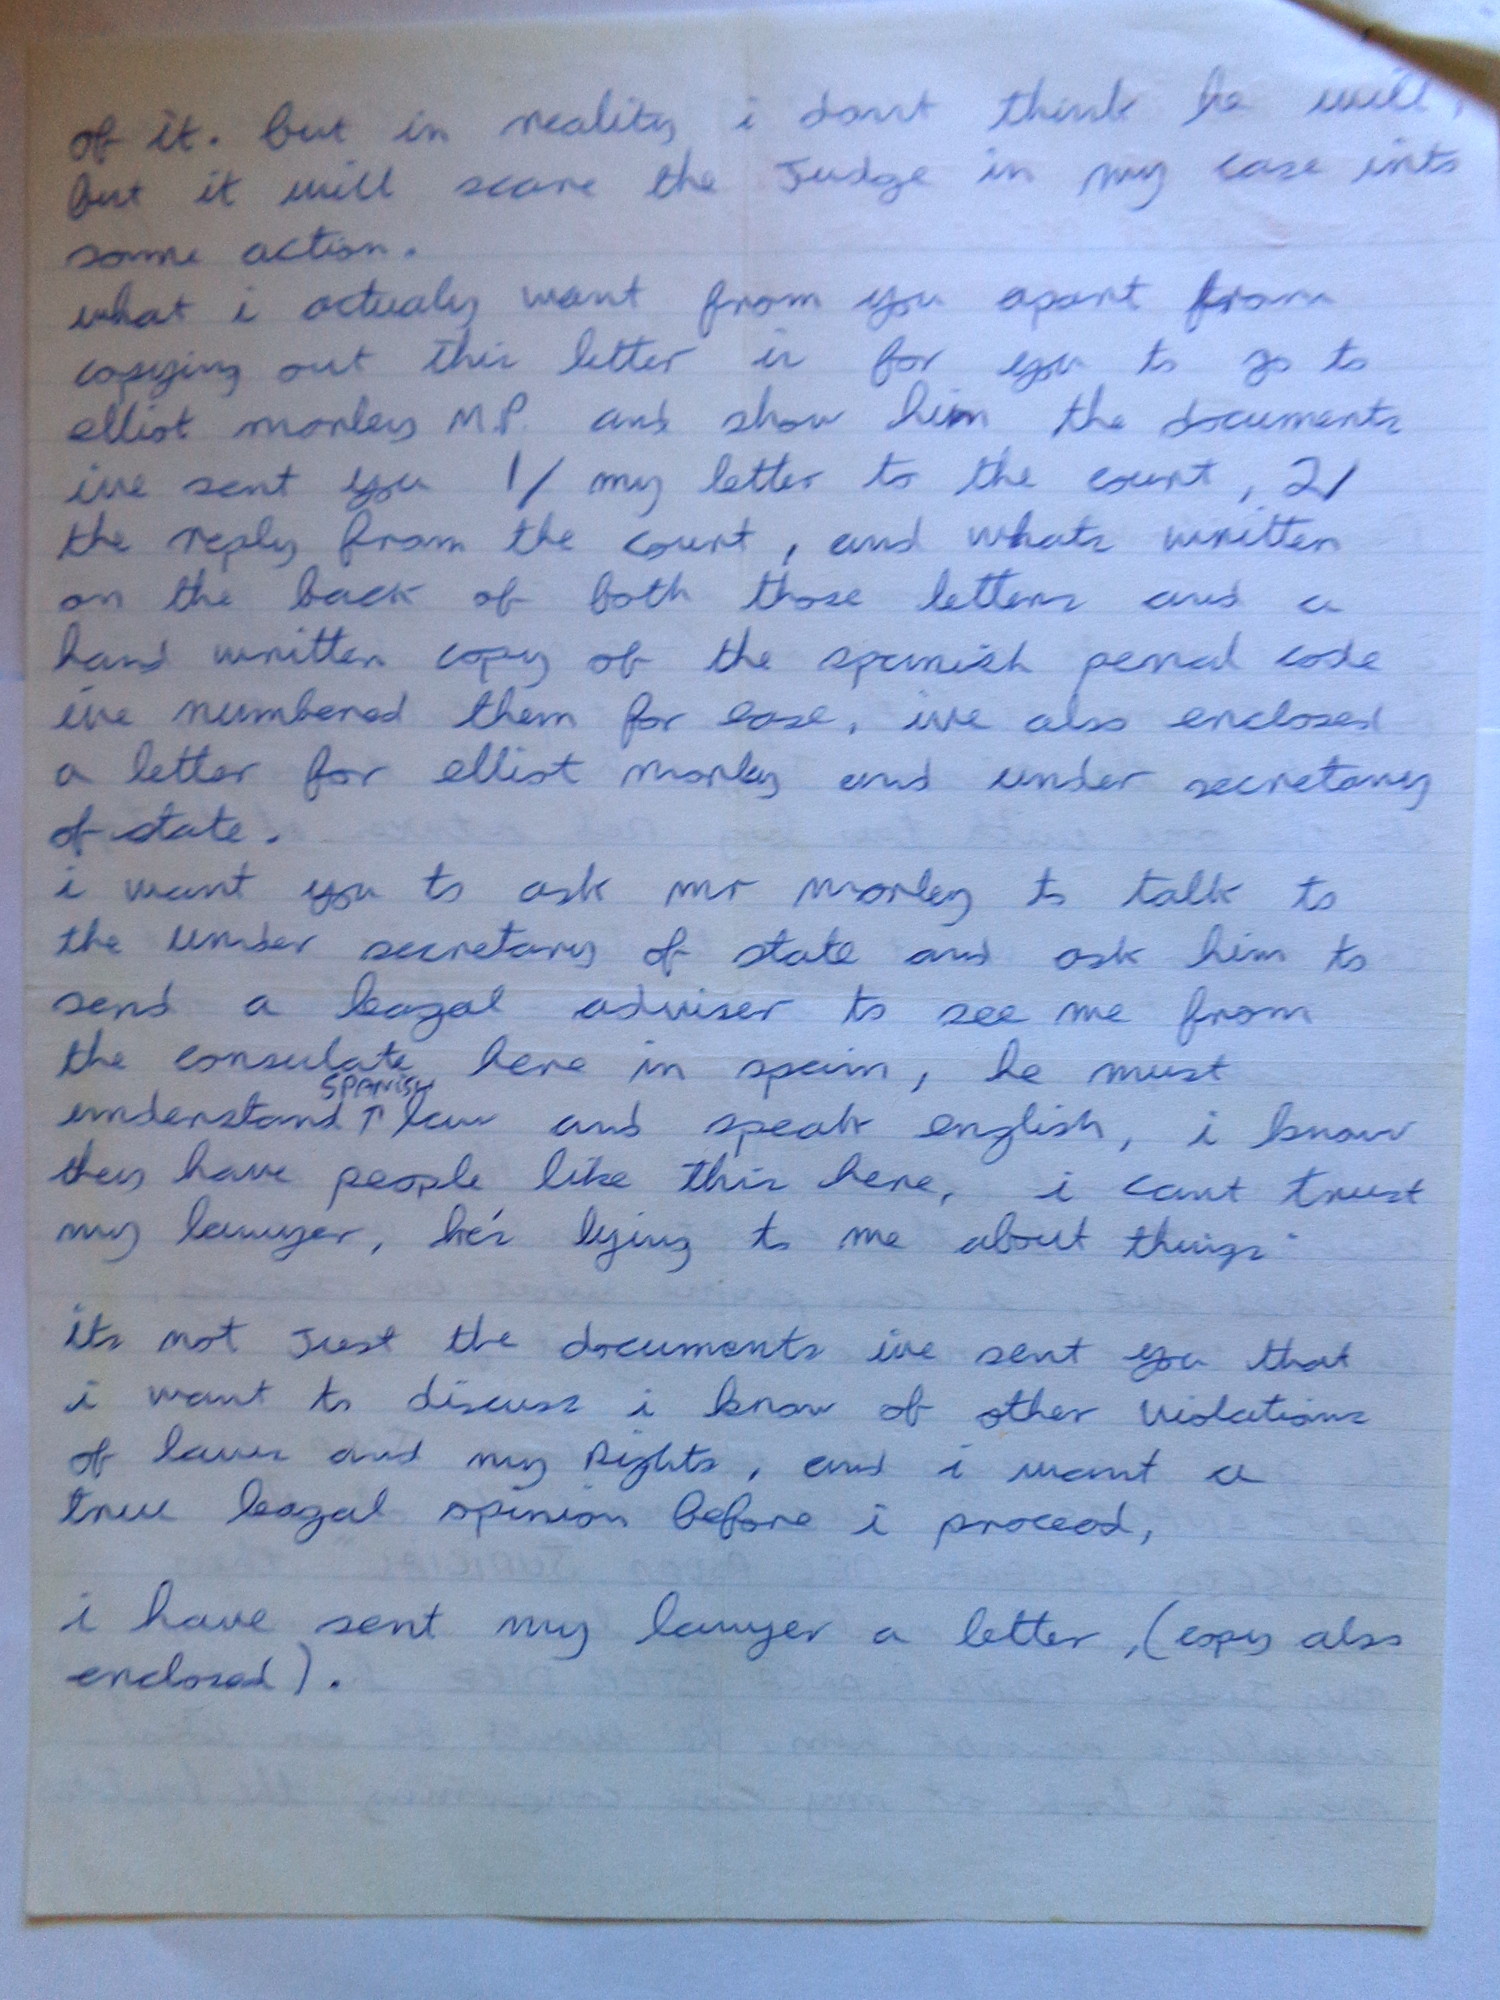 of it. but in reality i dont think he will,
but it will scare the Judge in my case into
some action.
what i actualy want from you apart from
copying out this letter is for you to go to
elliot morley M.P. and show him the documents
ive sent you 1/ my letter to the court, 2/
the reply from the court, and whats written
on the back of both those letters and a
hand written copy of the spanish penal code
ive numbered them for ease, ive also enclosed
a letter for elliot morley and under secretary
of state.
i want you to ask mr morley to talk to
the under secretary of state and ask him to
send a leagal adviser to see me from
the consulate here in spain, he must
SPANISH
understand ↑ law and speak english, i know
they have people like this here, i cant trust
my lawyer, he's lying to me about things.
its not Just the documents ive sent you that
i want to discuss i know of other violations
of laws and my Rights, and i want a
true leagal opinion before i proceed,
i have sent my lawyer a letter, (copy also
enclosed).